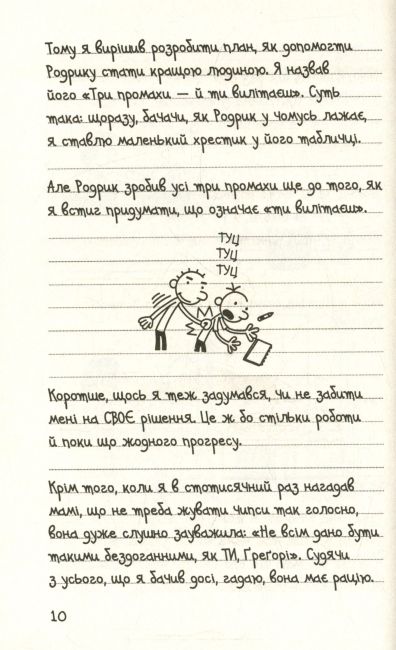 Тому я вирішив розробити план, як допомогти
Родрику стати кращою людиною. Я назвав
його «Три промахи — й ти вилітаєш». Суть
така: щоразу, бачачи, як Родрик у чомусь лажає,
я ставлю маленький хрестик у його табличці.
Але Родрик зробив усі три промахи ще до того, як
я встиг придумати, що означає «ти вилітаєш».
ТУЦ
ТУЦ
ТУЦ
Коротше, щось я теж задумався, чи не забити
мені на СВОЄ рішення. Це ж бо стільки роботи
й поки що жодного прогресу.
Крім того, коли я в стотисячний раз нагадав
мамі, що не треба жувати чипси так голосно,
вона дуже слушно зауважила: «Не всім дано бути
такими бездоганними, як ТИ, Ґреґорі». Судячи
з усього, що я бачив досі, гадаю, вона має рацію.
10